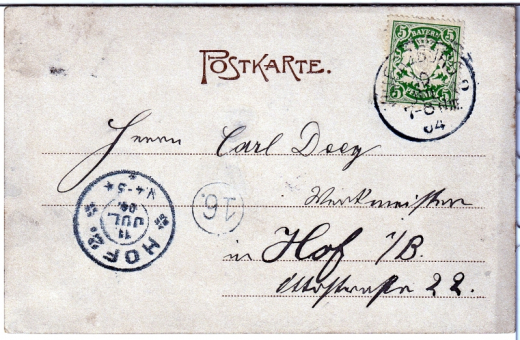 POSTKARTE.
5 BAYERN 5
5 PFENNIG 5
7-8 NM
04
Herrn Carl Doeg
Werkmeister
in Hof i/B.
Ottostraße 22.
16.
HOF 2.
11
JUL
04
V.4-5